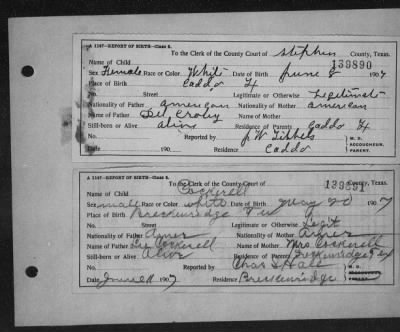 A 1167-REPORT OF BIRTH-Class 5.
To the Clerk of the County Court of Stephens County, Texas.
Name of Child 139890
Sex Female Race or Color. White Date of Birth June 8 1907
Place of Birth Caddo
No. Street Legitimate or Otherwise Legitimate
Nationality of Father American Nationality of Mother American
Name of Father Croley Name of Mother
Still-born or Alive alive Residence of Parents Caddo
No. Reported by J. W. Tibbets M. D.
ACCOUCHEUR.
PARENT.
Date 190 Residence Caddo
A 1167-REPORT OF BIRTH-Class 5.
Name of Child Cockerell 139891
Sex male Race or Color. white Date of Birth May 20 1907
Place of Birth Breckenridge Tex
No. Street Legitimate or Otherwise Legit
Nationality of Father Amer Nationality of Mother Amer
Name of Father Lee Cockerell Name of Mother. Mrs Cockerell
Still-born or Alive Alive Residence of Parents Breckenridge Tex
No. Reported by Chas Hall M. D.
ACCOUCHEUR.
PARENT.
Date June 1907 Residence Breckenridge